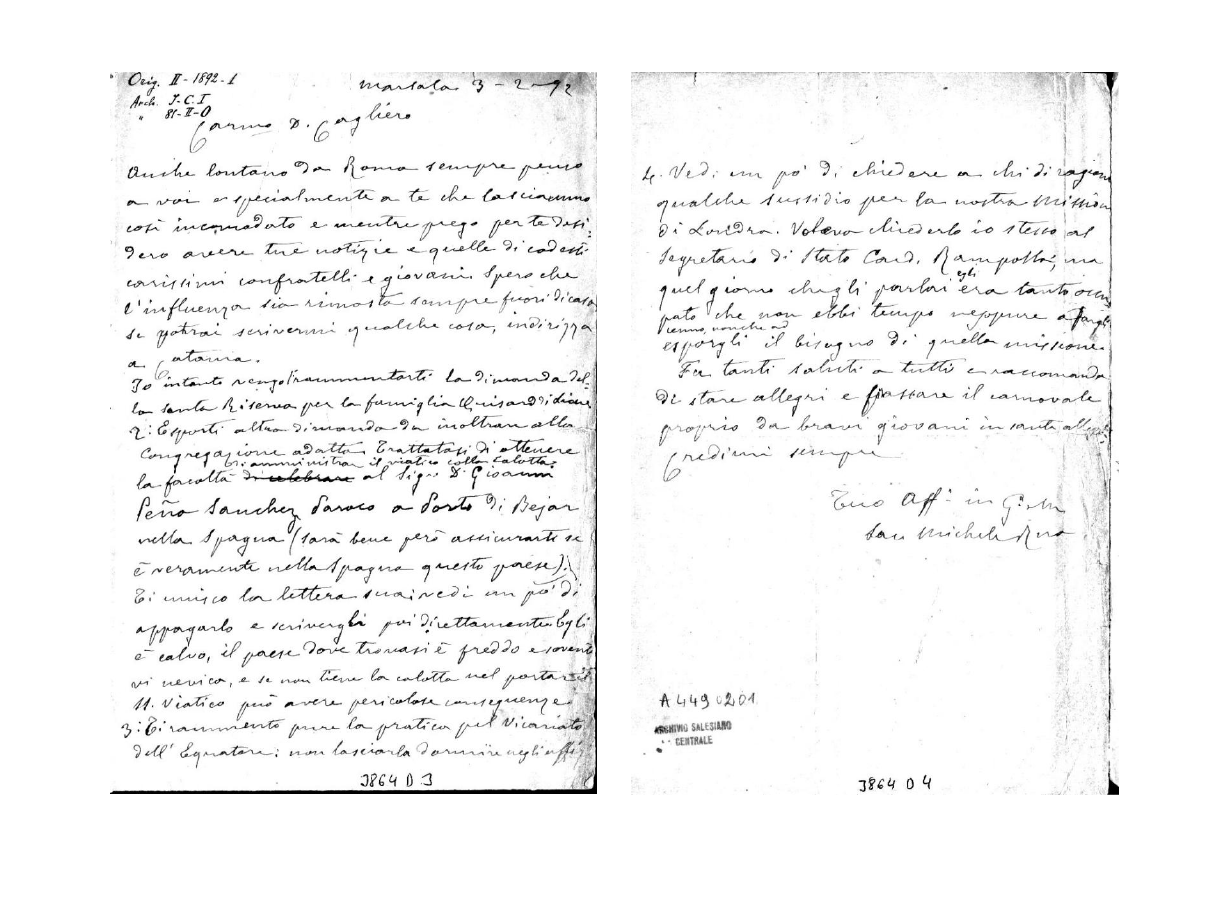 Orig. II - 1892 - 1
Arch. J. C. I
" 81-II-0
Marsala 3 - 2 - 92
Carmo D. Cagliero
Anche lontano da Roma sempre penso
a voi e specialmente a te che lasciammo
così incomodato e mentre prego per te desi-
dero avere tue notizie e quelle di codesti
carissimi confratelli e giovani. Spero che
l'influenza sia rimasta sempre fuori di casa
se potrai scrivermi qualche cosa, indirizza
a Catania.
Io intanto vengo rammentarti la dimanda del-
la santa Riserva per la famiglia
2: Esporti altra dimanda da inoltrare alla
Congregazione adatta. Trattatasi di ottenere
di amministrar il viatico colla calotta
la facoltà di celebrare al Sigr. D. Giovanni
Peña Sanchez Paroco a Porto di Bejar
nella Spagna (sarà bene però assicurarti se
è veramente nella Spagna questo paese).
Ti unisco la lettera sua; vedi un pò di
appagarlo e scrivergli poi direttamente. Egli
è calvo, il paese dove trovasi è freddo e sovente
vi nevica, e se non tiene la calotta nel portare il
SS. Viatico può avere pericolose conseguenze
3: Ti rammento pure la pratica pel Vicariato
dell' Equatore: non lasciarla dormire negli uffizi
J864 D 3
4. Vedi un pò di chiedere a chi di ragione
qualche sussidio per la nostra Missione
di Londra. Voleva chiederlo io stesso al
Segretario di Stato Card. Rampolla, ma
quel giorno che gli parlai egli era tanto occu-
pato che non ebbi tempo neppure a
cenno, nonchè ad
esporgli il bisogno di quella missione.
Fa tanti saluti a tutti e raccomanda
di stare allegri e passare il carnovale
proprio da bravi giovani in santa allegria
Credimi sempre
Tuo Aff. in G. e M.
Sac. Michele Rua
A 449 0201
ARCHIVIO SALESIANO
CENTRALE
J864 D 4